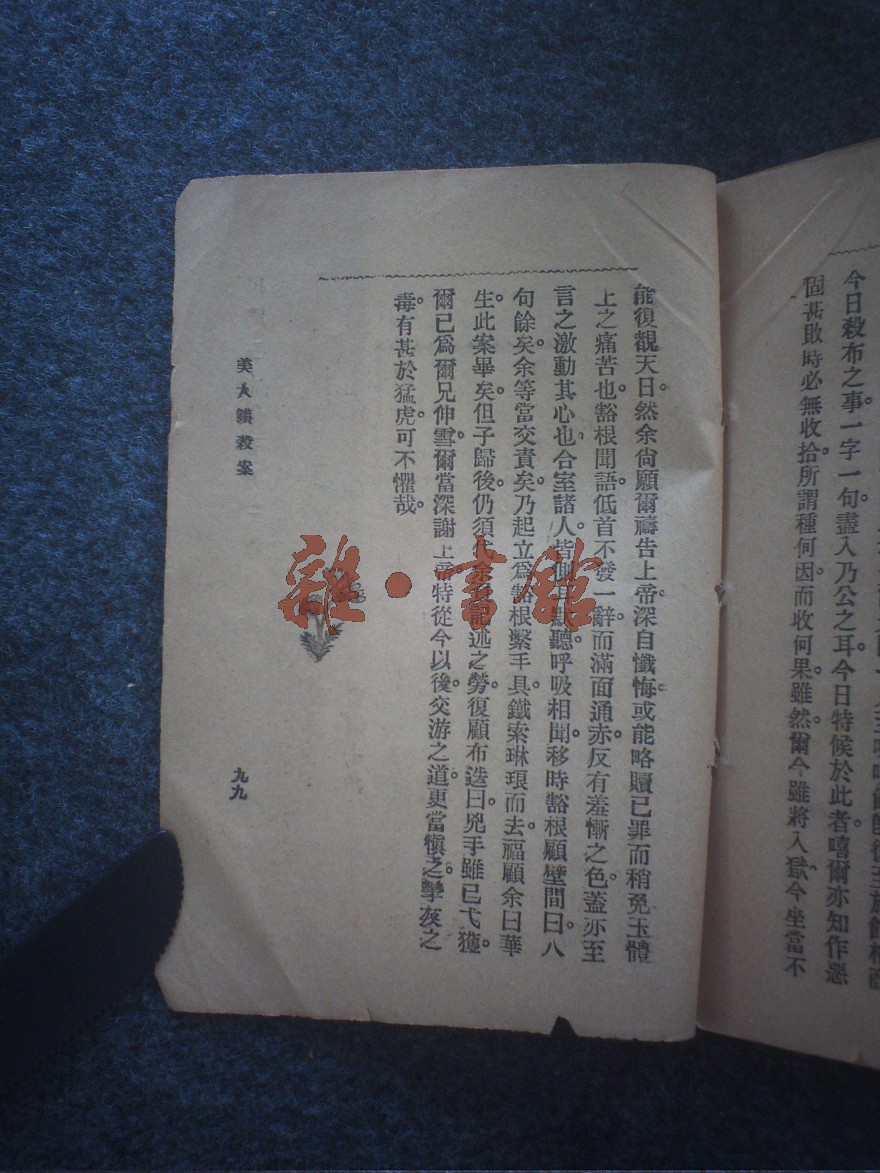 今日殺布之事一字一句盡入乃公之耳今日特候於此者嘻爾亦知作惡
固甚敗時必無收拾所謂種何因而收何果雖然爾今雖將入獄今坐當不
能復觀天日然余尙願爾禱告上帝深自懺悔或能略贖已罪而稍免玉體
上之痛苦也豁根聞語低首不發一辭而滿面通赤反有羞慚之色蓋亦至
言之激動其心也合室諸人皆側耳默聽呼吸相聞移時豁根顧壁間曰八
句餘矣余等當交責矣乃起立爲豁根繫手具鐵索琳琅而去福顧余曰華
生此案畢矣但子歸後仍須代余記述之勞復顧布迭曰兇手雖已弋獲
爾已爲爾兄伸雪爾當深謝上帝特從今以後交游之道更當愼之孽友之
毒有甚於猛虎可不懼哉
美人鎖殺案
九九
雜·書館